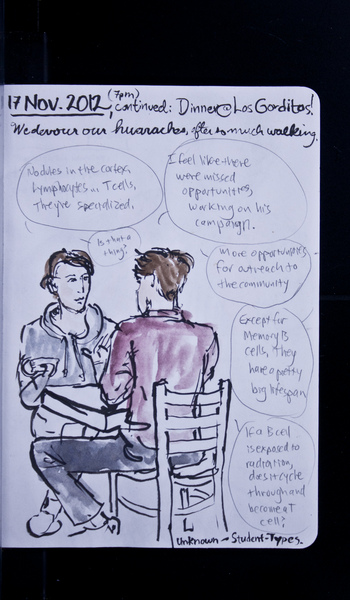 17 NOV. 2012 (7pm) continued: Dinner @ Los Gorditos!
We devour our huaraches, after so much walking.
Nodules in the cortex,
lymphocytes in T cells,
They're specialized.
I feel like there
were missed
opportunities,
working on his
campaign.
Is that a
thing?
More opportunities
for outreach to
the community
Except for
Memory B
cells, they
have a pretty
big lifespan
If a B cell
is exposed to
radiation,
does it cycle
through and
become a T
cell?
Unknown - Student-Types.